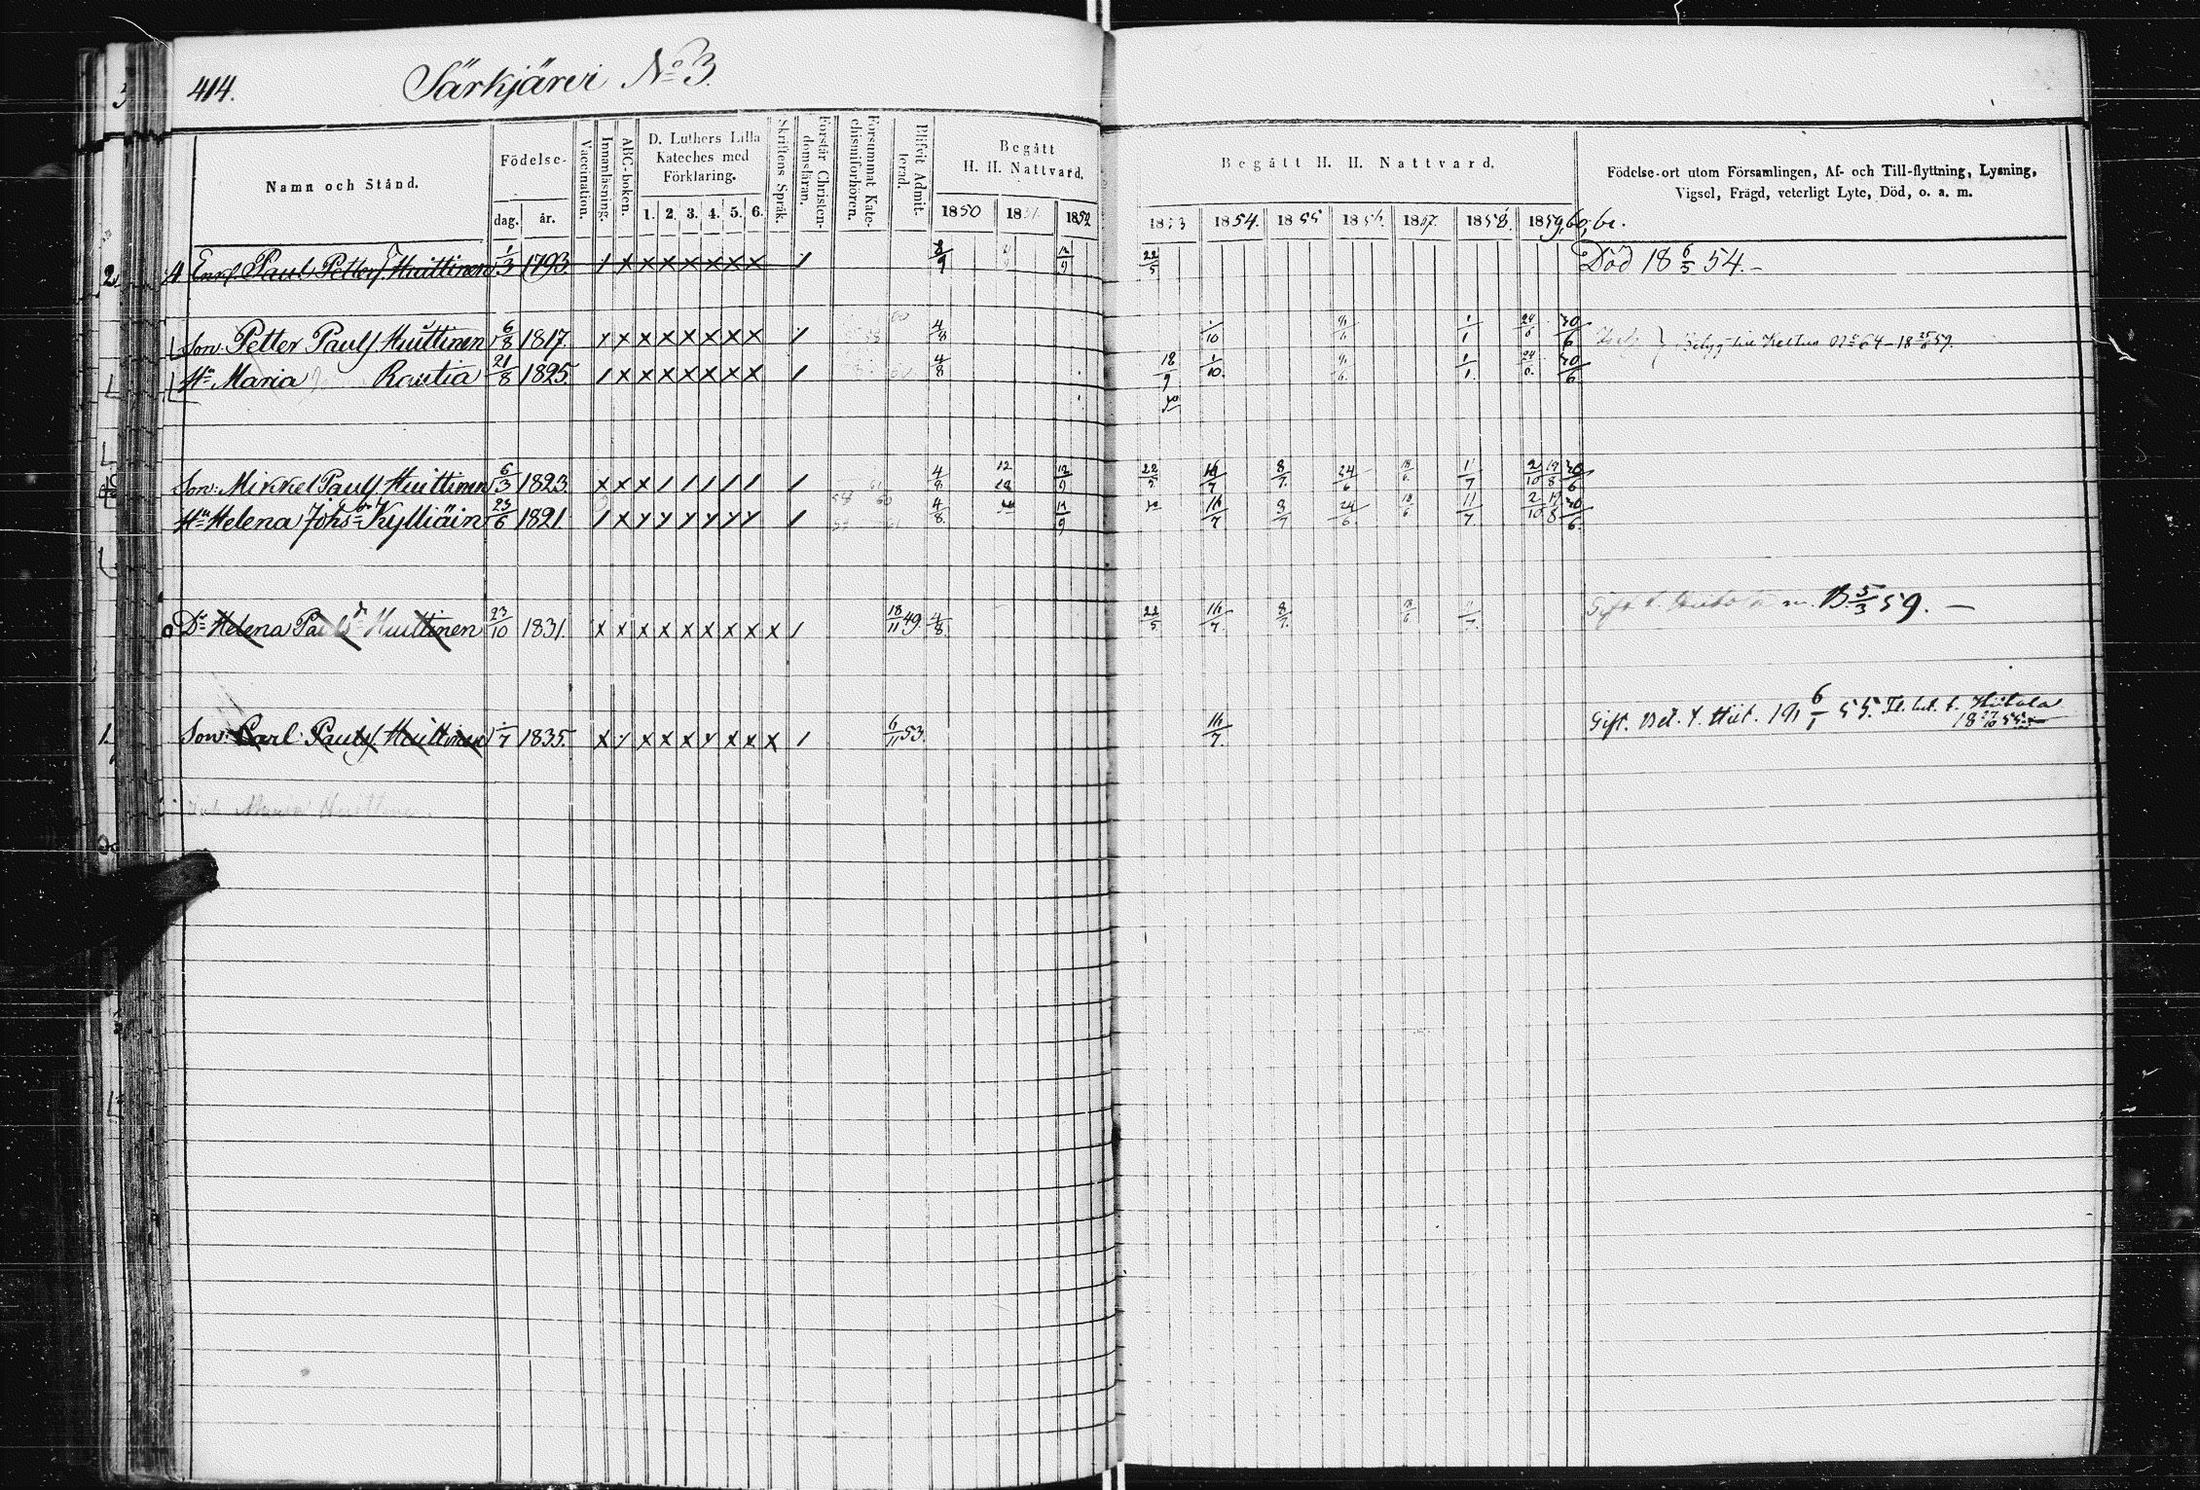 414. Särkjärvi No 3.
Namn och Stånd. Födelse- dag. år. Vaccination. Innanläsning. ABC-boken. D. Luthers Lilla Kateches med Förklaring. 1. 2. 3. 4. 5. 6. Skriftens Språk. Förstår Christendomsläran. Försummat Katechismiförhören. Blifvit Admitterad. Begått H. H. Nattvard. 1850 1851 1852
Begått H. H. Nattvard. 1853 1854. 1855 1856. 1857. 1858. 1859, 60, 61.
Födelse-ort utom Församlingen, Af- och Till-flyttning, Lysning, Vigsel, Frägd, veterligt Lyte, Död, o. a. m.
Paul Petterf Huittinen 1/3 1793. / x x x x x x x / 8/9 12/9 22/5 Död 18 6/5 54.-
Son. Petter Paulf Huittinen 6/8 1817. x x x x x x x x / 4/8 1/10 1/1 24/6 30/6
Hu Maria Rautia 21/8 1825. / x x x x x x x / 4/8 18/9 1/10. 1/1. 30/6
Son: Mikkel Paulf Huittinen 6/3 1823. x x x / / / / / / 4/8 12/9 22/5 16/7 8/7. 24/6 18/6. 11/7 2/10 19/8 30/6
Hu Helena Johs dr Kylliäin 23/6 1821 / x y y y y y y / 4/8. 12/9 16/7 8/7 24/6 18/6 11/7 2/10 19/8 30/6.
Dr Helena Pauls dr Huittinen 23/10 1831. x x x x x x x x x / 18/11 49. 4/8. 22/5 16/7. 8/7. 18/6 B 5/3 59. —
Son: Carl Paulf Huittinen 1/7 1835. x y x x x y x x x / 6/11 53. 16/7. Gift. Bet. t. Hiit. 6/1 55. t. Hiitola
Maria Huittinen